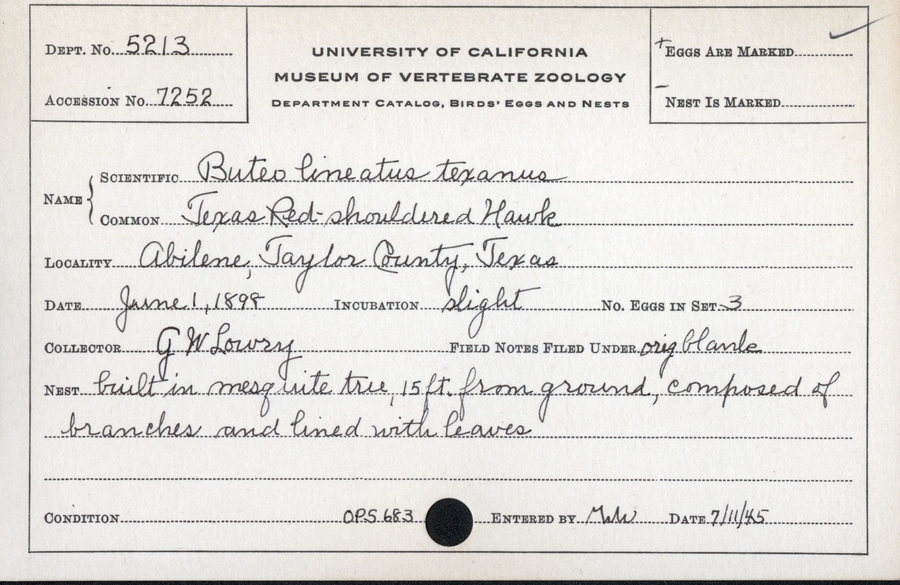 Dept. No. 5213
Accession No. 7252
UNIVERSITY OF CALIFORNIA
MUSEUM OF VERTEBRATE ZOOLOGY
Department Catalog, Birds' Eggs and Nests
+Eggs Are Marked
-Nest Is Marked
Name
Scientific Buteo lineatus texanus
Common Texas Red-shouldered Hawk
Locality Abilene, Taylor County, Texas
Date June 1, 1898 Incubation slight No. Eggs in Set 3
Collector G W Lowry Field Notes Filed Under orig blank
Nest built in mesquite tree, 15 ft. from ground, composed of
branches and lined with leaves
Condition OPS 683 Entered by Date 7/11/45